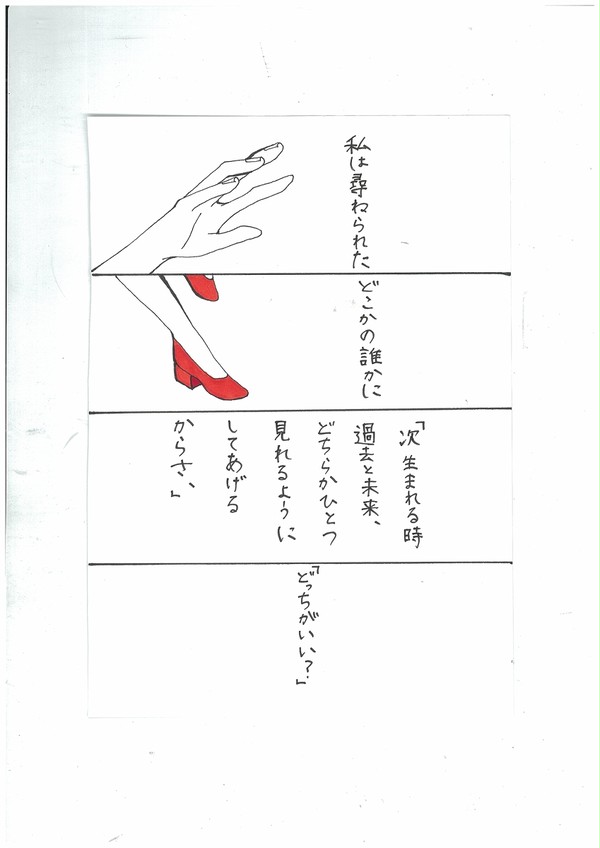 私は尋ねられた
どこかの誰かに
「次生まれる時
過去と未来、
どちらかひとつ
見れるように
してあげる
からさ、」
「どっちがいい?」